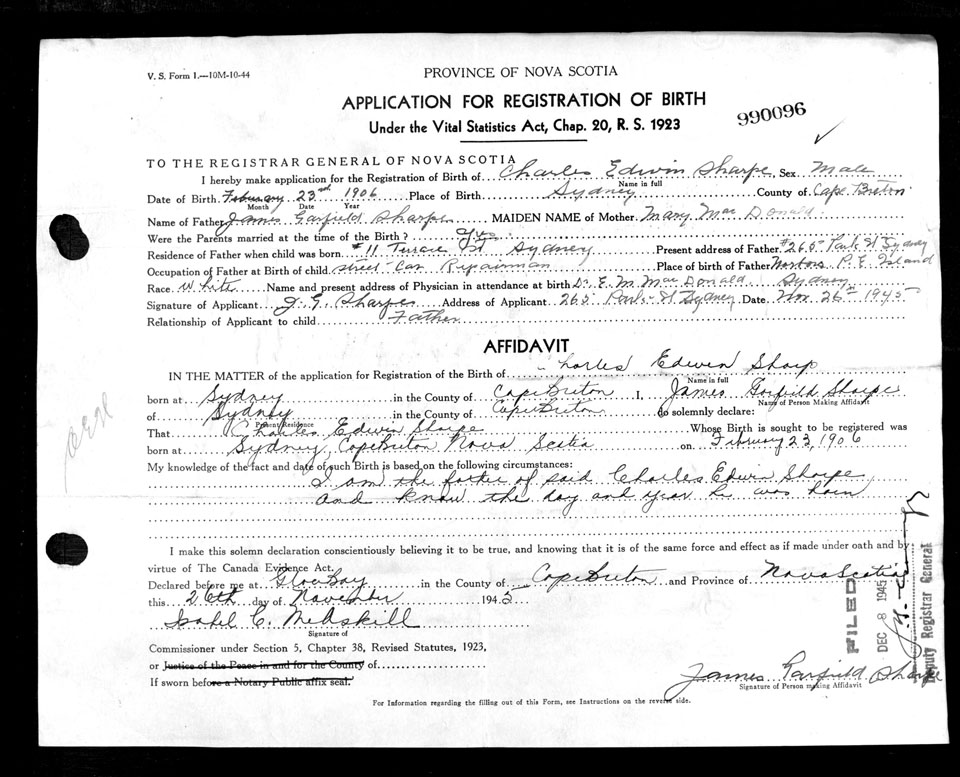 V. S. Form 1.—10M-10-44
PROVINCE OF NOVA SCOTIA
APPLICATION FOR REGISTRATION OF BIRTH
990096
Under the Vital Statistics Act, Chap. 20, R. S. 1923
TO THE REGISTRAR GENERAL OF NOVA SCOTIA
I hereby make application for the Registration of Birth of Charles Edwin Sharpe, Sex Male
Name in full
Date of Birth February 23rd 1906 Place of Birth Sydney County of Cape Breton
Month Date Year
Name of Father James Garfield Sharpe MAIDEN NAME of Mother Mary Mac Donald
Were the Parents married at the time of the Birth? Yes
Residence of Father when child was born #11 St Sydney Present address of Father #265 Park St Sydney
Occupation of Father at Birth of child Street-Car Repairman Place of birth of Father P. E. Island
Race White Name and present address of Physician in attendance at birth Dr. E. M. Mac Donald Sydney
Signature of Applicant J. G. Sharpe Address of Applicant 265 Park St Sydney Date Nov. 26th 1945
Relationship of Applicant to child Father
AFFIDAVIT
IN THE MATTER of the application for Registration of the Birth of Charles Edwin Sharp
Name in full
born at Sydney in the County of Cape Briton I, James Garfield Sharpe
Name of Person Making Affidavit
of Sydney in the County of Cape Briton do solemnly declare:
Present Residence
That Charles Edwin Sharpe Whose Birth is sought to be registered was
born at Sydney, Cape Briton Nova Scotia on February 23, 1906
My knowledge of the fact and date of such Birth is based on the following circumstances:
I am the father of said Charles Edwin Sharpe
and know the day and year he was born
I make this solemn declaration conscientiously believing it to be true, and knowing that it is of the same force and effect as if made under oath and by
virtue of The Canada Evidence Act.
Declared before me at Glace Bay in the County of Cape Briton and Province of Nova Scotia
this 26th day of November 1945
Isabel C. McAskill
Signature of
Commissioner under Section 5, Chapter 38, Revised Statutes, 1923,
or Justice of the Peace in and for the County of
If sworn before a Notary Public affix seal.
James Garfield Sharpe
Signature of Person making Affidavit
For Information regarding the filling out of this Form, see Instructions on the reverse side.
FILED
DEC 8 1945
Deputy Registrar General